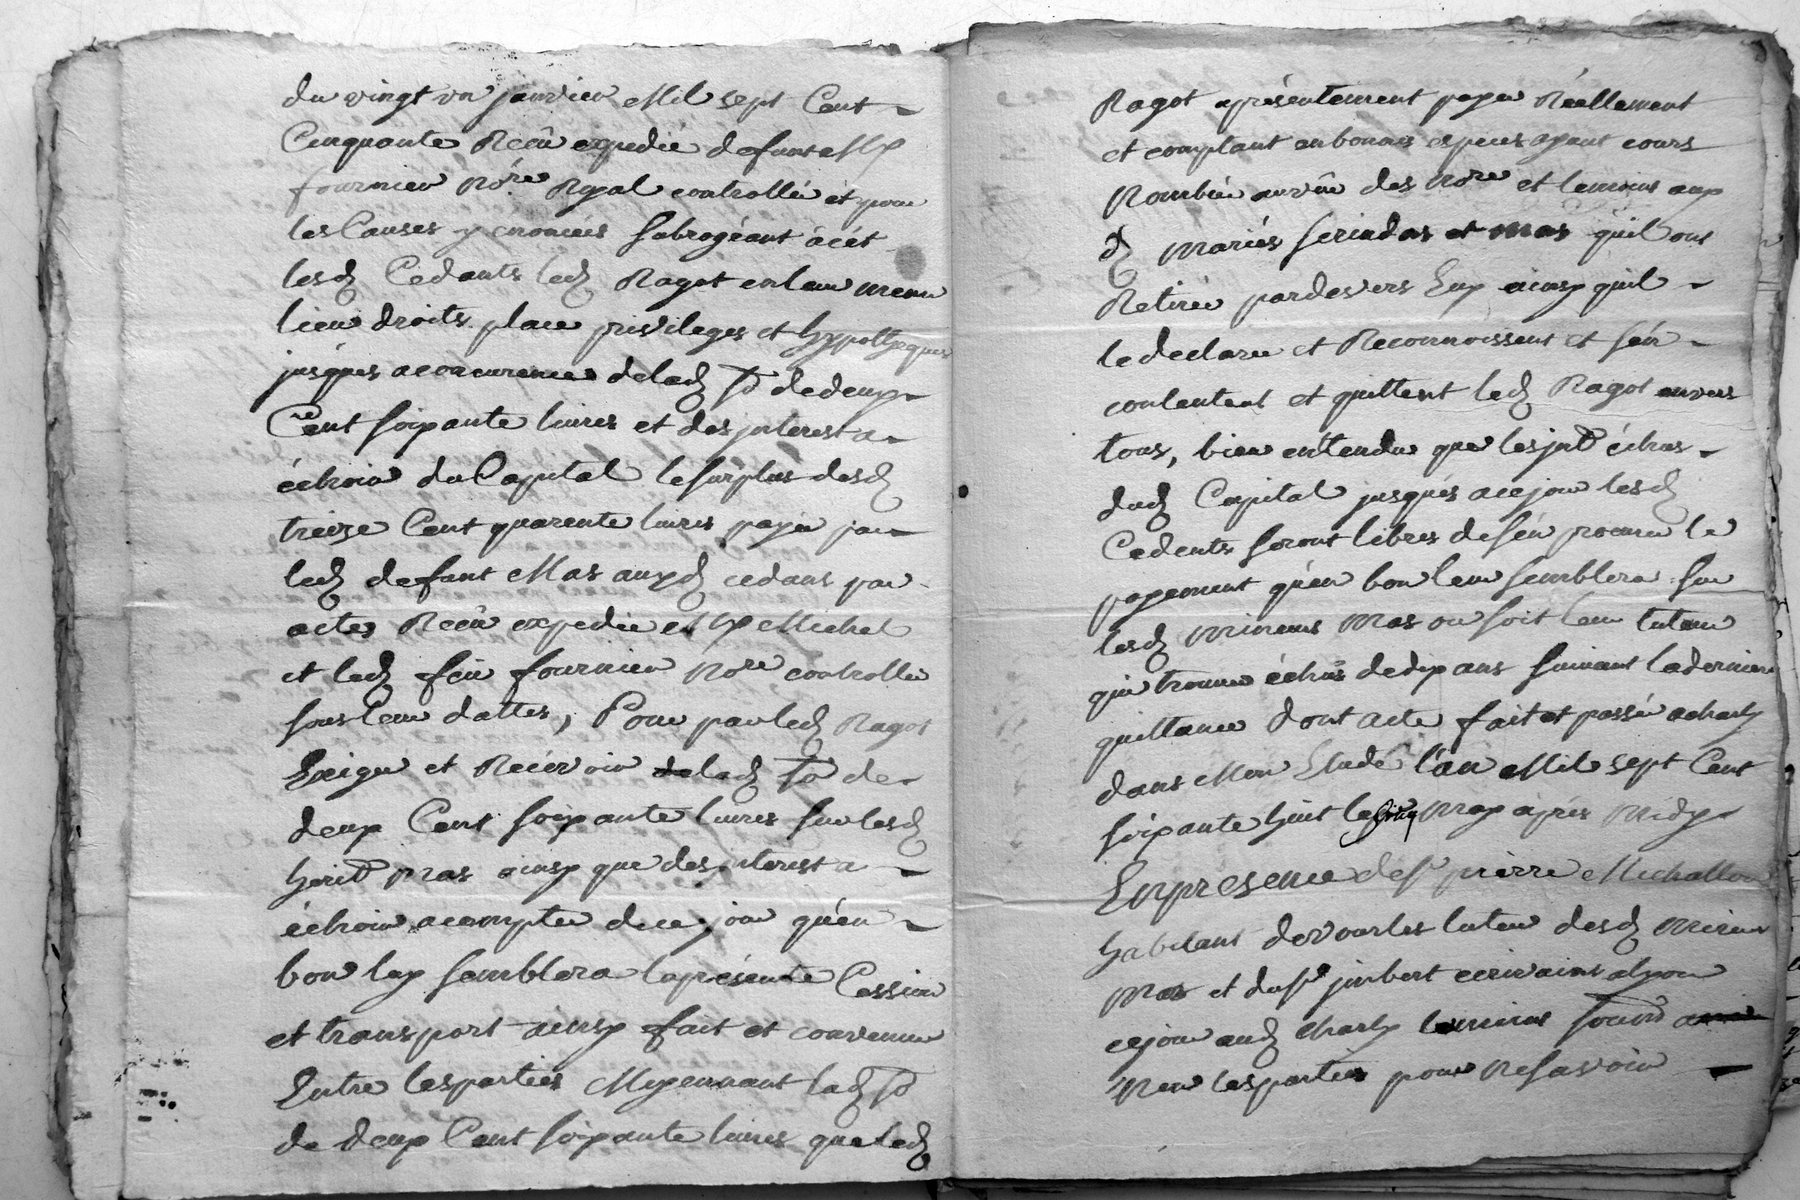 du vingt un janvier Mil sept Cent
Cinquante Receu expedié defunt Me
fournier Nore Royal controllé et pour
les Causes y enoncées subrogéant á cét
lesd Cedants led Ragot en leur meme
lieu droits place privileges et hypotheques
jusques a concurence de lad So de deux
Cent soixante livres et des jnterest a
échoir du Capital le surplus desd
treize Cent quarente livres payée par
led defunt Mas auxd cedans par
actes Receu expedié Me Michel
et led feu fournier Nore controllé
sous leur dattes, Pour par led Ragot
Exiger et Recevoir de lad So de
deux Cent soixante livres sur lesd
herit Mas ainsy que des jnterest a
échoir a compter de ce jour qu'en
bon luy semblera la présente Cession
et transport ainsy fait et convenu
Entre les parties Moyennant lad So
de deux Cent soixante livres que led
Ragot a présentement payé Réellement
et comptant en bonnes espèces ayant cours
Nombrée au vû des Nore et temoins aux
d mariés serindas et Mas qu'il ont
Retirée pardevers Eux ainsy qu'il
le declare et Reconnoissent et s'én
contentent et quittent led Ragot envers
tous, bien entendu que les jnt échus
dud Capital jusqués a ce jour lesd
Cedents seront libres de s'én procurer le
payement qu'en bon leur semblera sur
lesd mineurs Mas ou soit leur tuteur
qui trouve échus de dix ans suivant la derniere
quittance dont acte fait et passé a charly
dans Mon Etude l'an Mil sept Cent
soixante huit le cinq May aprés Midy
En présence de sr pierre Michallon
habitant de vourles tuteur desd mineurs
Mas et du sr jmbert ecrivains a lyon
ce jour aud Charly temoins
Non les parties pour ne savoir